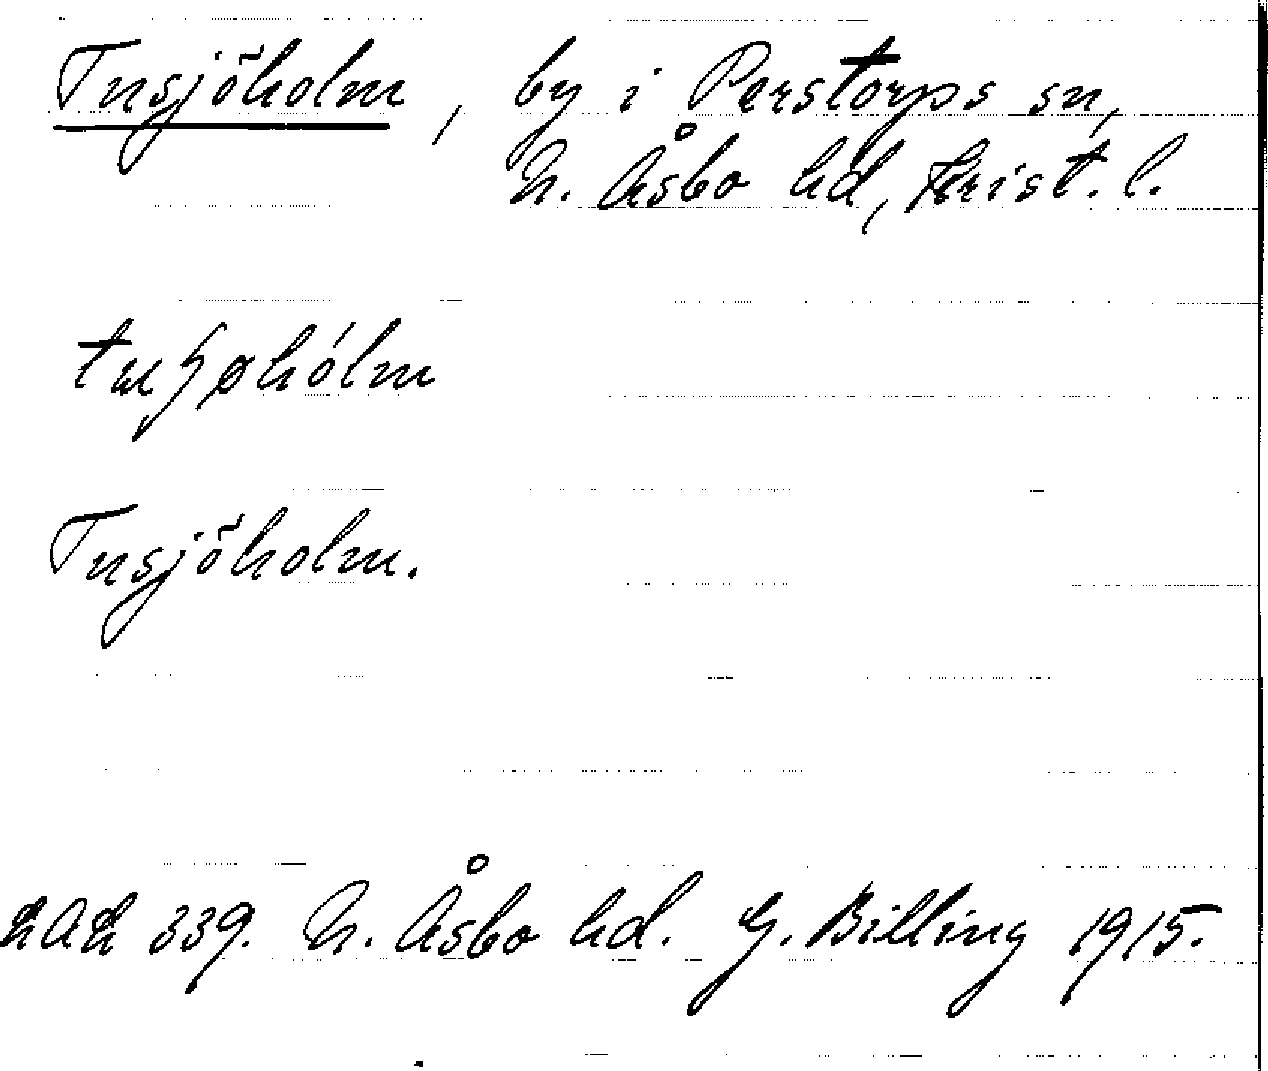 Tusjöholm, by i Perstorps sn,
N. Åsbo hd, Krist. l.
Tusjöholm.
LAL 339. N. Åsbo hd. G. Billing 1915.